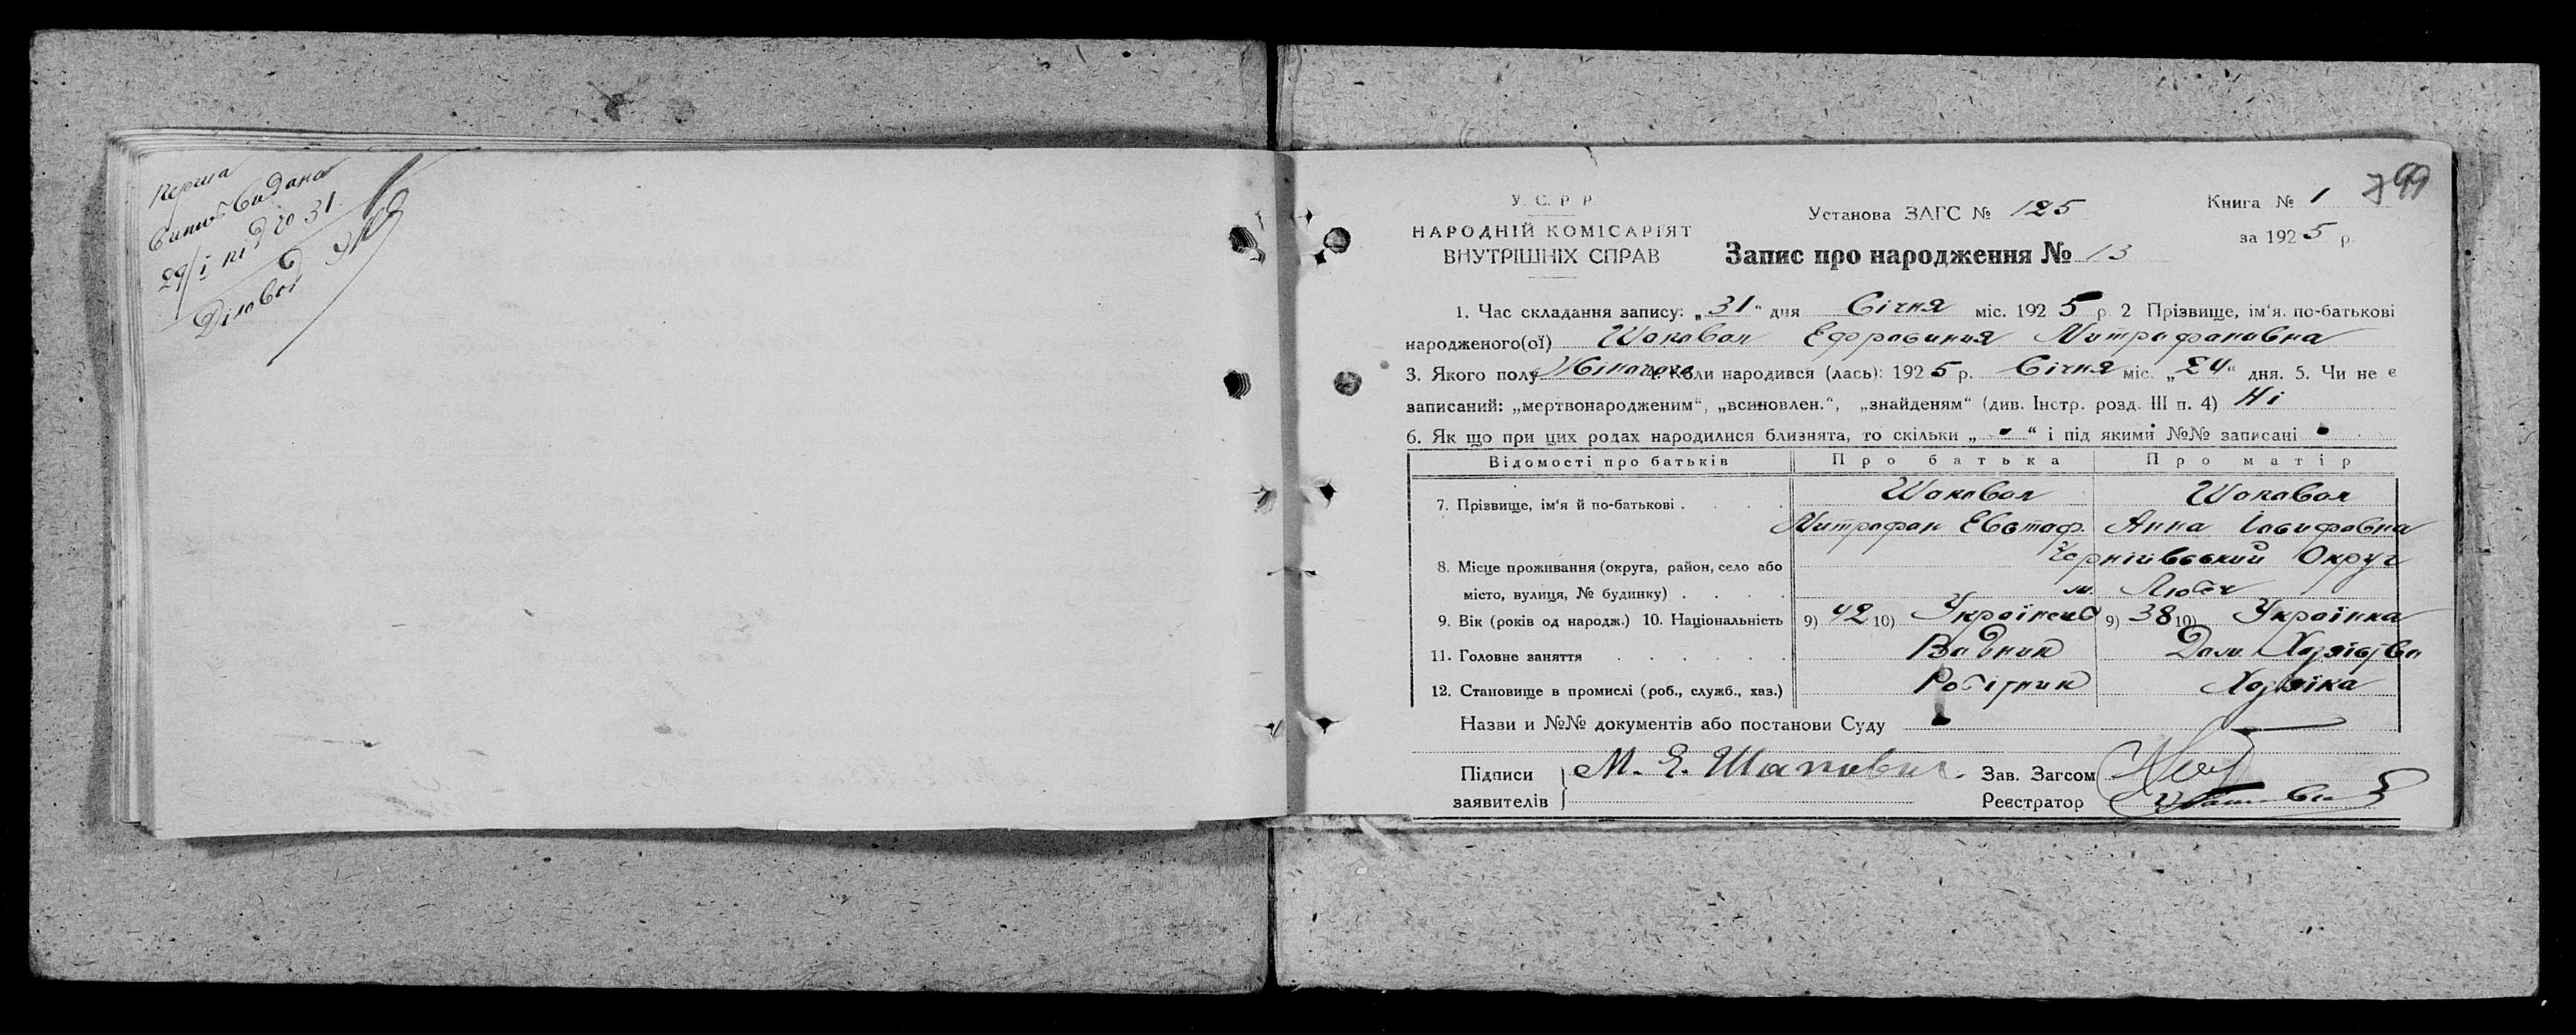 Перша
видана
29/I під № 31.
У. С. Р. Р.
НАРОДНІЙ КОМІСАРІЯТ
ВНУТРІШНІХ СПРАВ
Установа ЗАГС № 125
Запис про народження № 13
Книга № 1
за 1925 р.
99
1. Час складання запису: „31“ дня Січня міс. 1925 р. 2 Прізвище, ім'я, по-батькові
народженого(ої) Шаповал Ефросиния Митрофановна
3. Якого полу Жіночого 4. Коли народився (лась): 1925 р. Січня міс. „24“ дня. 5. Чи не є
записаний: „мертвонародженим“, „всиновлен.“, „знайденям“ (див. Інстр. розд. III п. 4) Ні
6. Як що при цих родах народилися близнята, то скільки „-“ і під якими №№ записані -
Відомості про батьків Про батька Про матір
7. Прізвище, ім'я й по-батькові . . . . Шаповал Шаповал
Митрофан Евстаф. Анна Іосифовна
8. Місце проживання (округа, район, село або Чернігівський Округ
місто, вулиця, № будинку) . . . . м. Любеч
9. Вік (років од народж.) 10. Національність 9) 42 10) Українець 9) 38 10) Українка
11. Головне заняття . . . . . . Водник Дом. Хозяйство
12. Становище в промислі (роб., служб., хаз.) Робітник Хозяйка
Назви и №№ документів або постанови Суду
Підписи М. Е. Шаповал. Зав. Загсом
заявителів Реєстратор